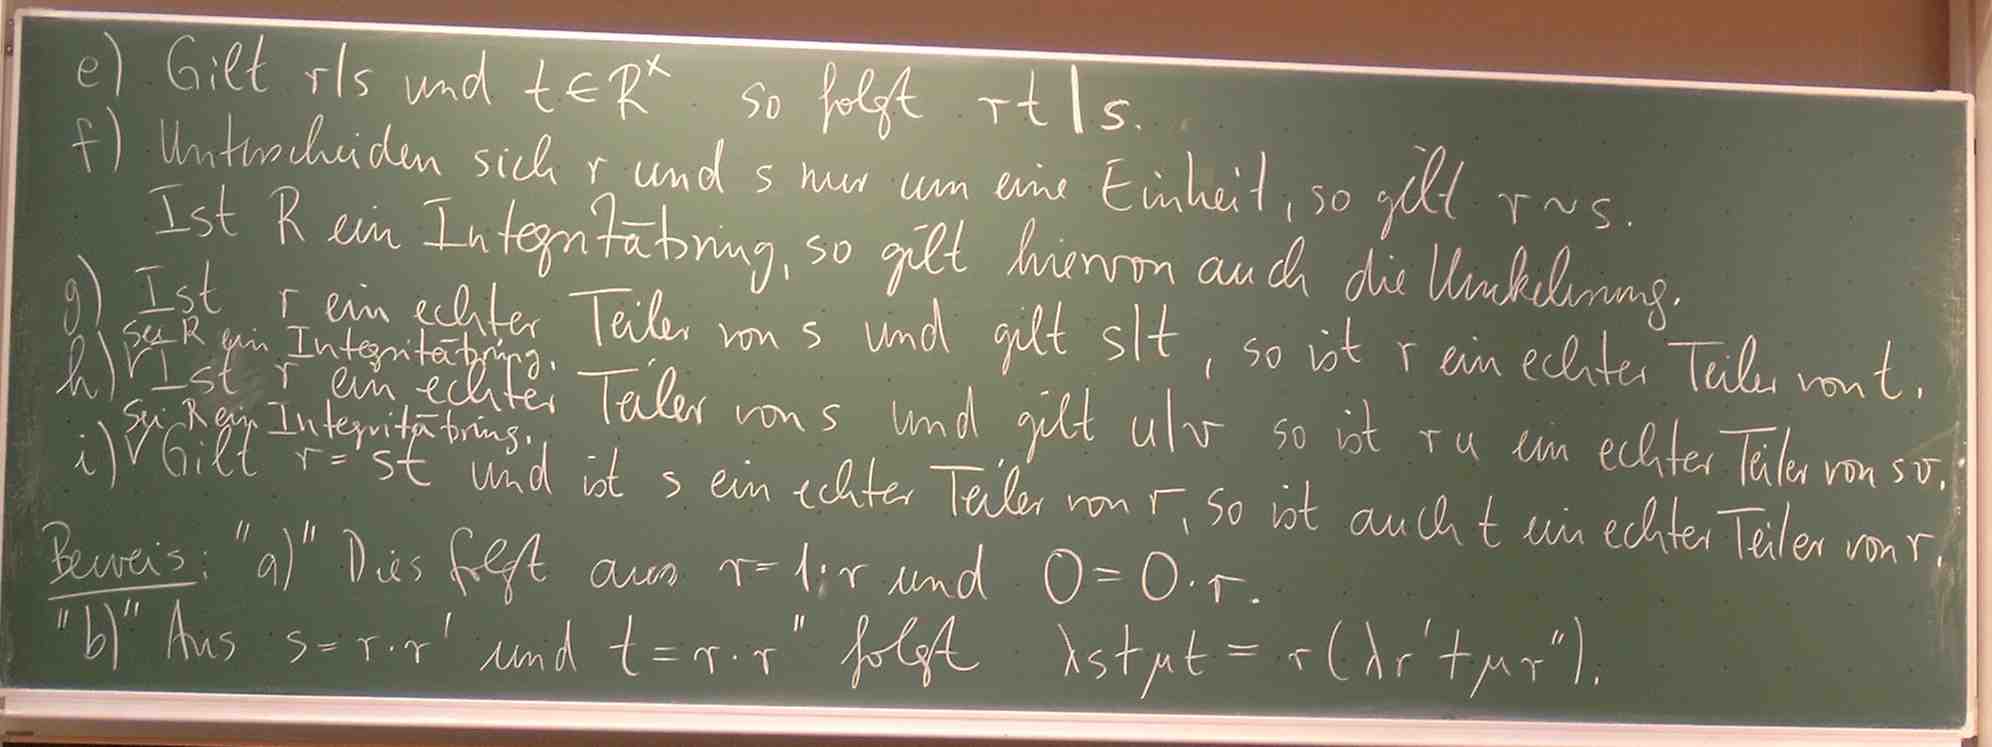 e) Gilt r|s und t∈R^× so folgt rt|s.
f) Unterscheiden sich r und s nur um eine Einheit, so gilt r~s.
Ist R ein Integritätbring, so gilt hiervon auch die Umkehrung.
g) Ist r ein echter Teiler von s und gilt s|t, so ist r ein echter Teiler von t.
Sei R ein Integritätbring.
h) ∨ Ist r ein echter Teiler von s und gilt u|v so ist ru ein echter Teiler von sv.
Sei R ein Integritätbring.
i) ∨ Gilt r=st und ist s ein echter Teiler von r, so ist auch t ein echter Teiler von r.
Beweis: "a)" Dies folgt aus r=1·r und 0=0·r.
"b)" Aus s=r·r' und t=r·r" folgt λs+μt=r(λr'+μr").